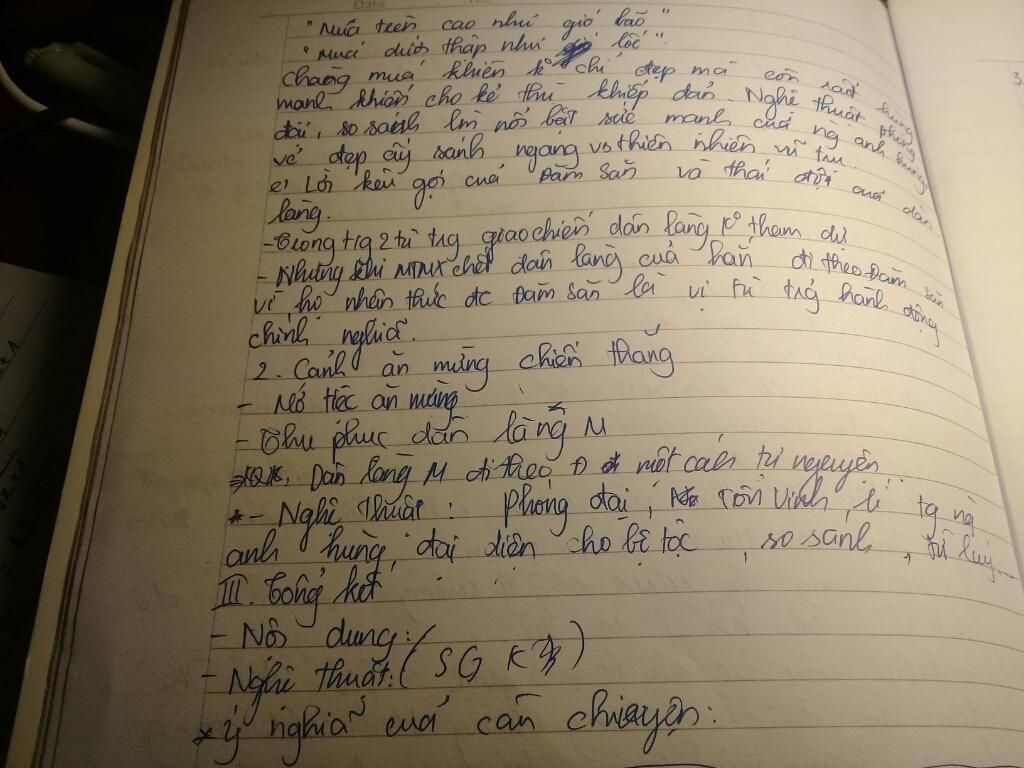 "Múa trên cao như gió bão"
"Múa dưới thấp như lốc".
Chàng múa khiên k° chỉ đẹp mà còn sức
mạnh khiến cho kẻ thù khiếp đảm. Nghệ thuật phóng
đại, so sánh lm nổi bật sức mạnh của ng anh hùng
vẻ đẹp ấy sánh ngang vs thiên nhiên vũ trụ.
c) Lời kêu gọi của Đăm Săn và thái độ của dân
làng.
- Trong trg giao chiến dân làng k° tham dự
- Nhưng khi MTMX chết dân làng của hắn đi theo Đăm Săn
vì họ nhận thức đc Đăm Săn là vị tù trg hành động
chính nghĩa.
2. Cảnh ăn mừng chiến thắng
- Mở tiệc ăn mừng
- Thu phục dân làng M
Dân làng M đi theo Đ một cách tự nguyện
* - Nghệ thuật: Phóng đại, tôn vinh, lí tg ng
anh hùng, đại diện cho bộ tộc, so sánh,
III. Tổng kết
- Nội dung:
- Nghệ thuật: (SGK)
* ý nghĩa của câu chuyện: